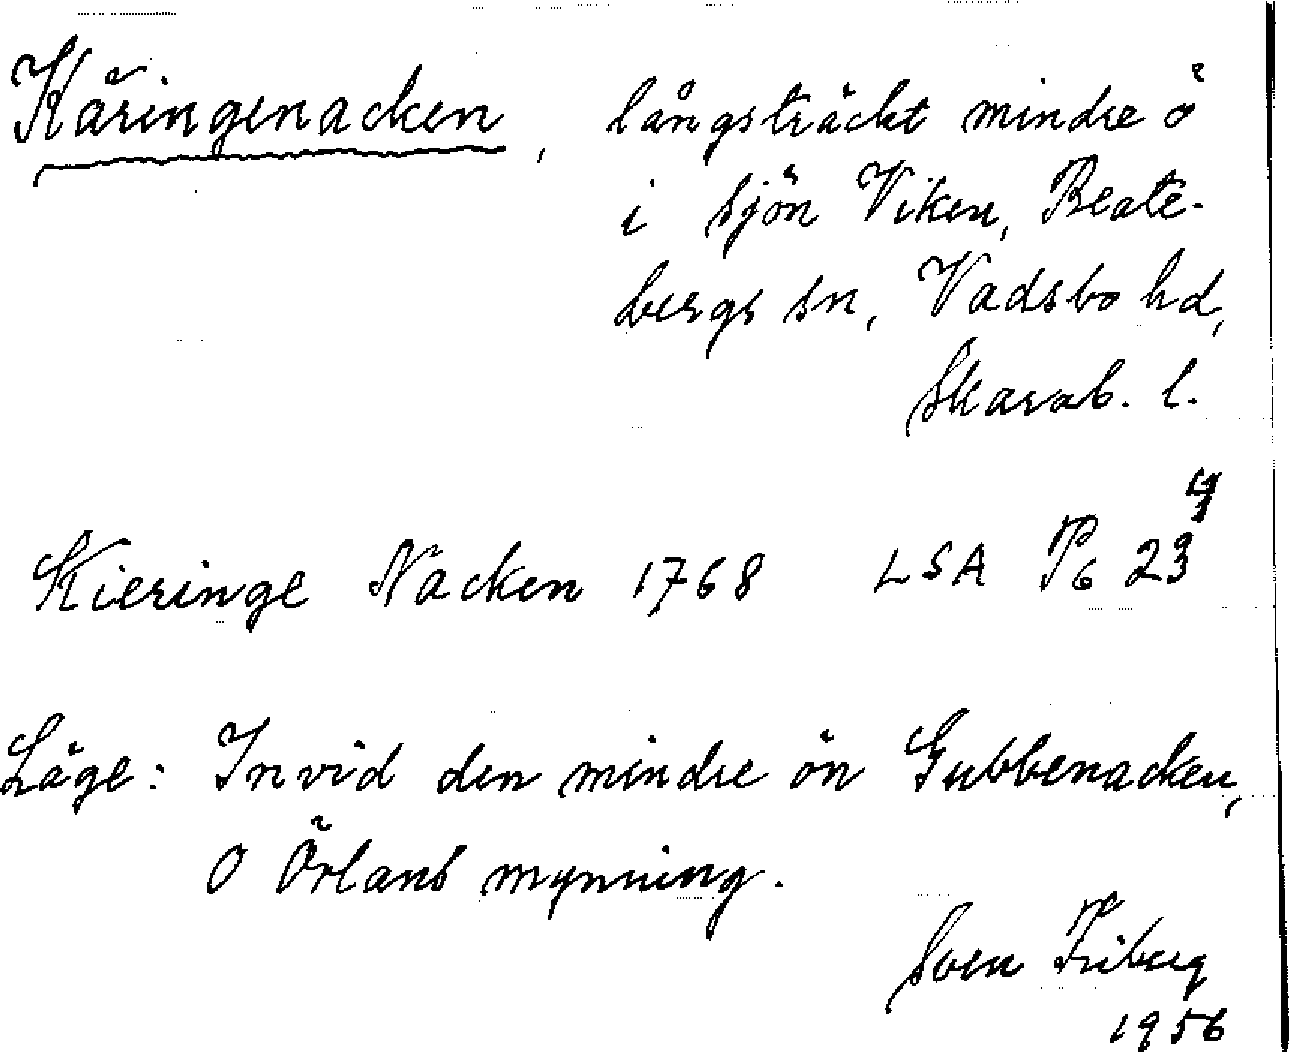 Käringenacken, långsträckt mindre ö
i sjön Viken, Beate-
bergs sn, Vadsbo hd,
Skarab. l.
Kieringe Nacken 1768 LSA P6 23⁴
Läge: Invid den mindre ön Gubbenacken,
O Örlans mynning.
Sven Friberg
1956